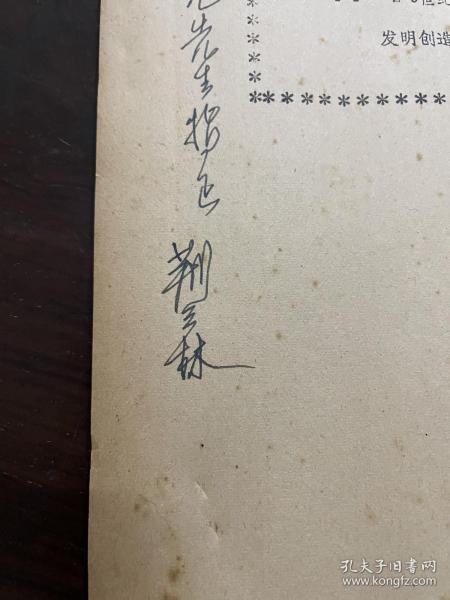 先生指正
荆三林
世纪
发明创造
*************
孔夫子旧书网
www.kongfz.com